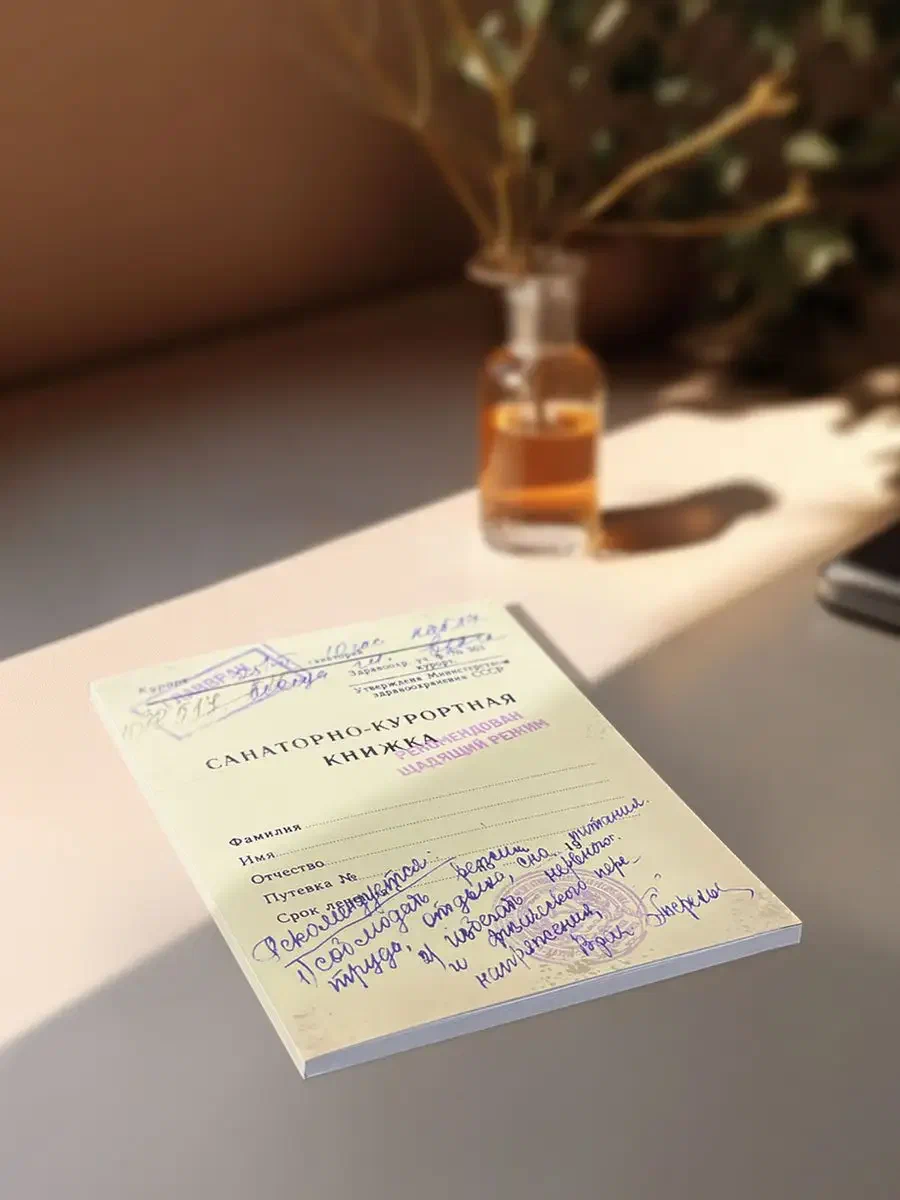 Курорт
санаторий
Здравоохр. уч. ф. № 303
курорт.
Утверждена Министерством
здравоохранения СССР
517
САНАТОРНО-КУРОРТНАЯ
КНИЖКА
РЕКОМЕНДОВАН
ЩАДЯЩИЙ РЕЖИМ
Фамилия
Имя
Отчество
Путевка №
Срок
Рекомендуется:
1) соблюдать режим
труда, отдыха, сна, питания.
2) избегать нервного
и физического пере-
напряжения,
Врач